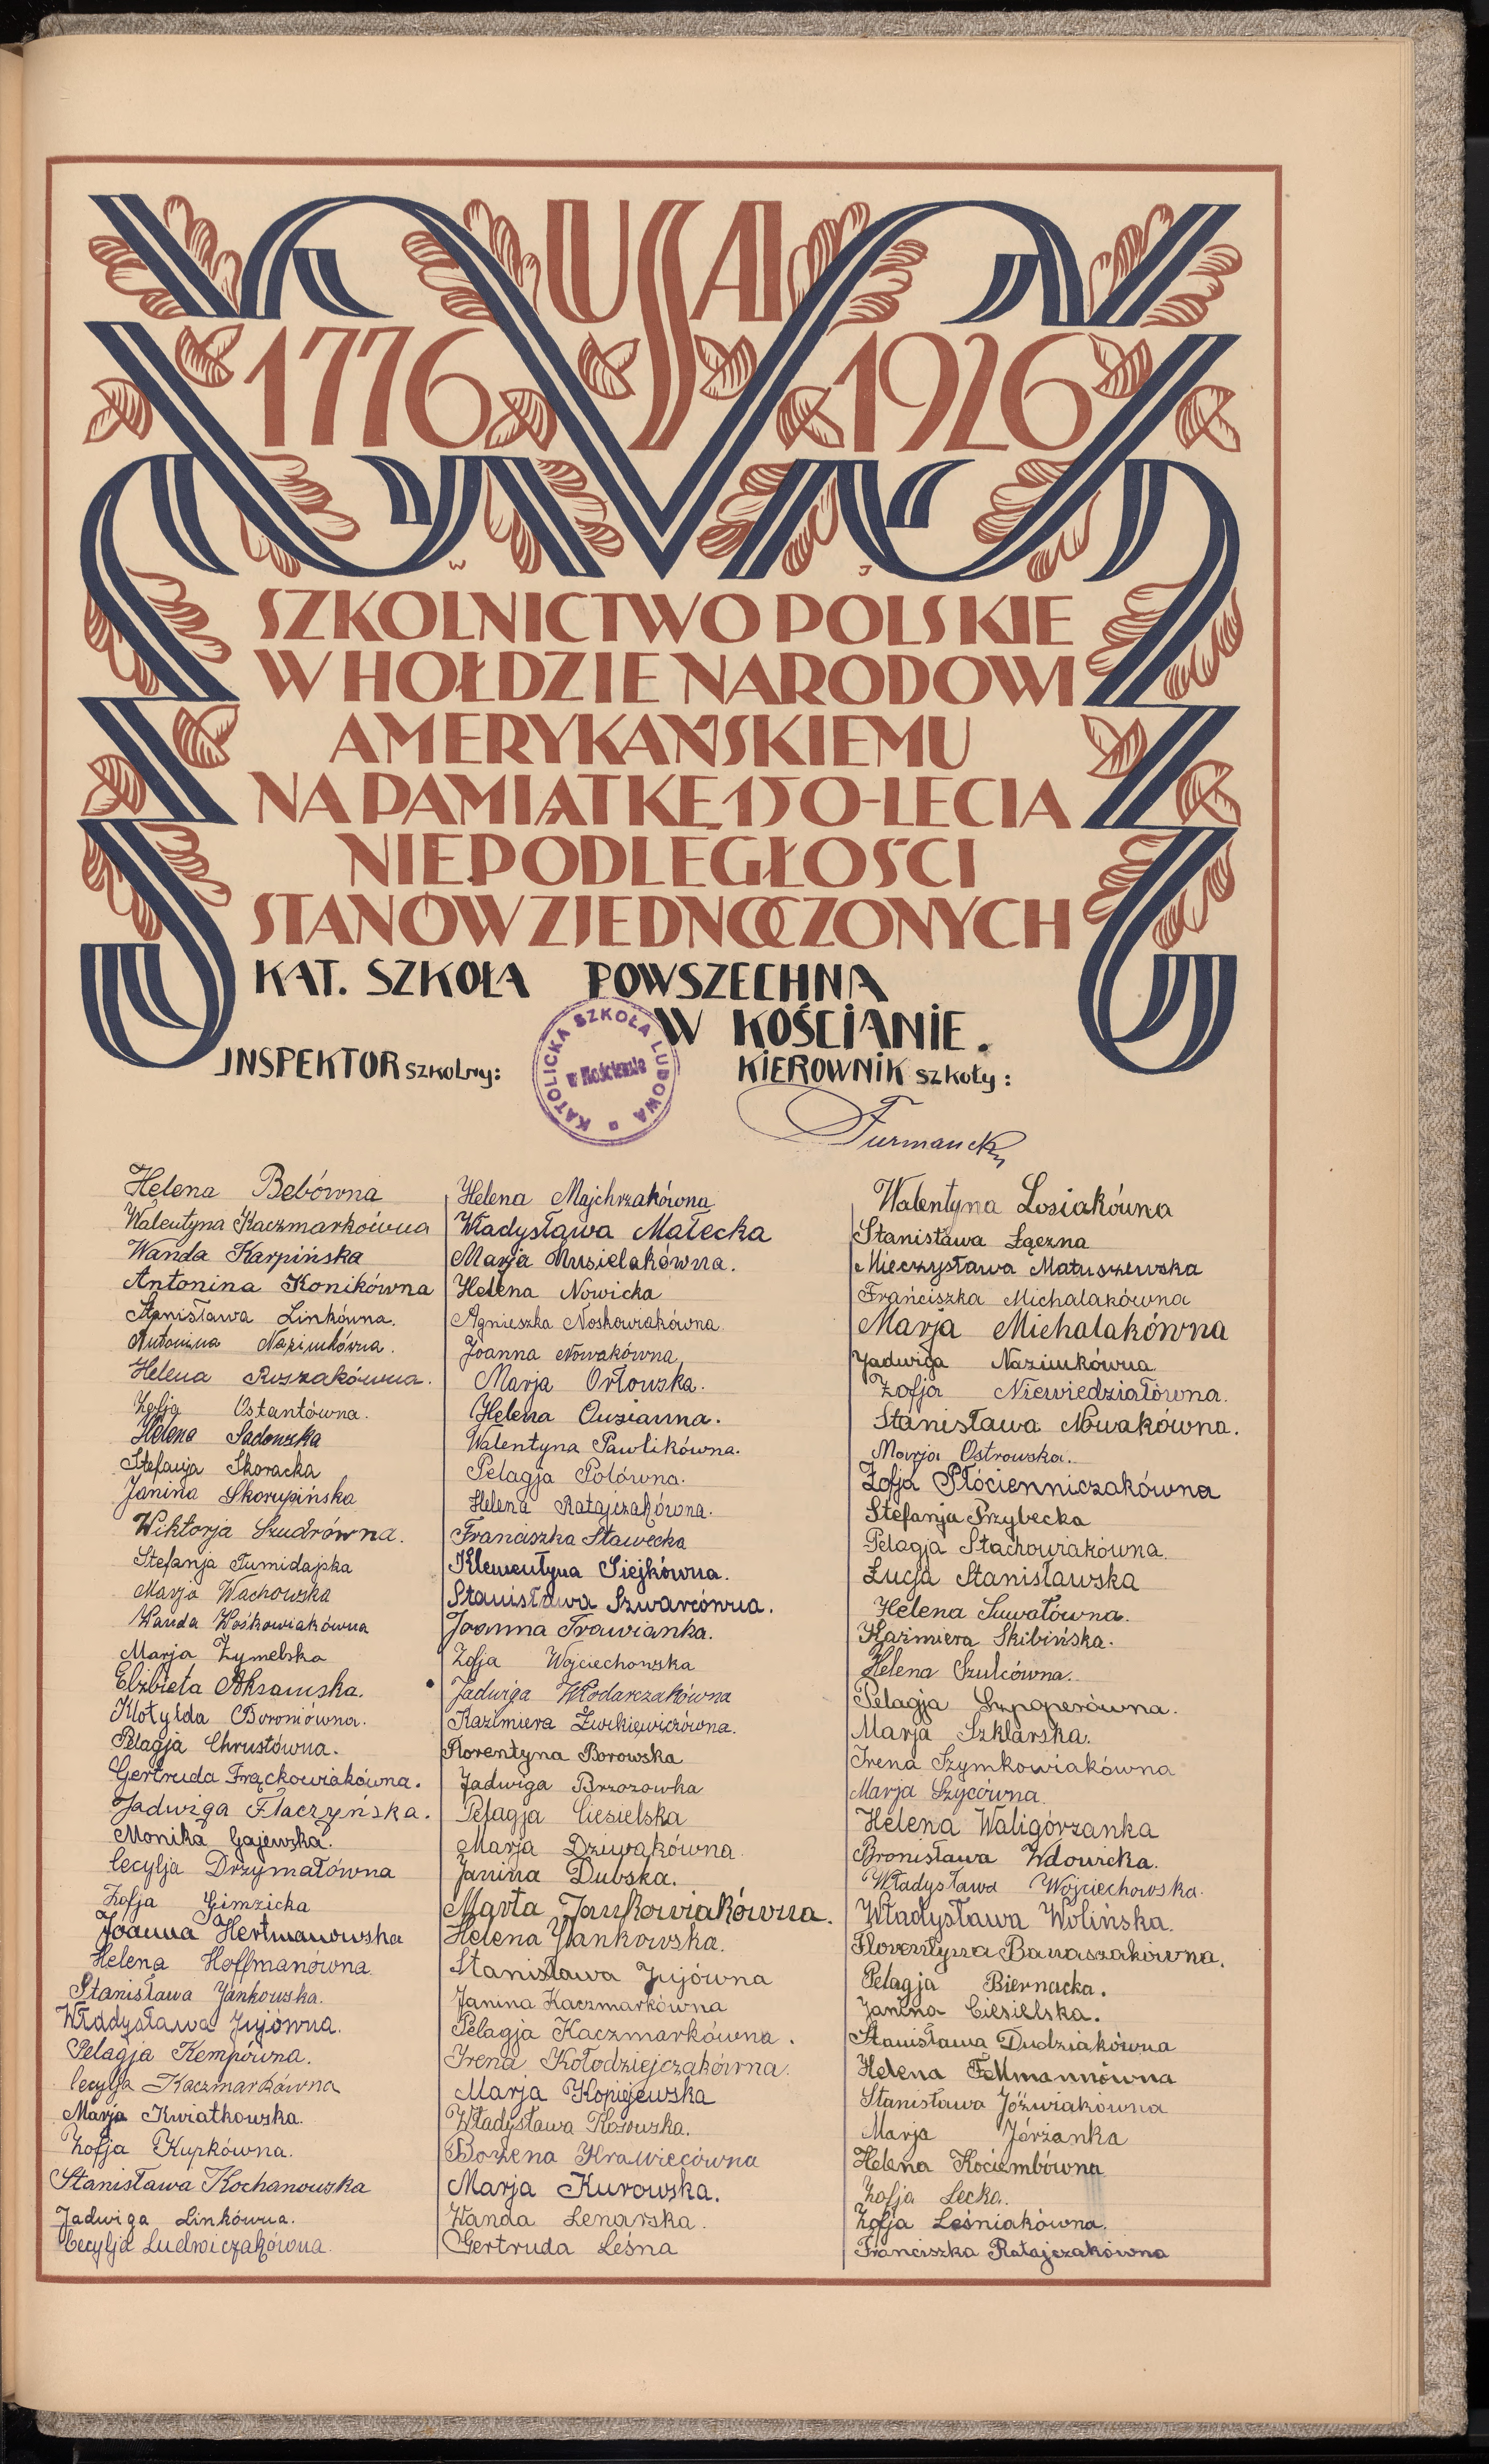 USA
1776 1926
W J
SZKOLNICTWO POLSKIE
W HOŁDZIE NARODOWI
AMERYKAŃSKIEMU
NA PAMIĄTKĘ 150-LECIA
NIEPODLEGŁOŚCI
STANÓW ZJEDNOCZONYCH
KAT. SZKOŁA POWSZECHNA
W KOŚCIANIE.
INSPEKTOR SZKOLNY:
KATOLICKA SZKOŁA LUDOWA
w Kościanie
KIEROWNIK szkoły:
Furmanek
Helena Bebówna
Walentyna Kaczmarkówna
Wanda Karpińska
Antonina Konikówna
Stanisława Linkówna.
Antonina Nazimkówna.
Helena Roszakówna.
Zofja Ostantówna.
Helena Sadowska
Stefanja Skoracka
Janina Skorupińska
Wiktorja Szudrówna.
Stefanja Tumidajska
Marja Wachowska
Wanda Wośkowiakówna
Marja Żymelska
Elżbieta Abramska.
Klotylda Boroniówna.
Pelagja Chrustówna.
Gertruda Frąckowiakówna.
Jadwiga Flaczyńska.
Monika Gajewska.
Cecylja Drzymałówna
Zofja Gimzicka
Joanna Hertmanowska
Helena Hoffmanówna
Stanisława Jankowska.
Władysława Jujówna.
Pelagja Kempówna.
Cecylja Kaczmarkówna
Marja Kwiatkowska.
Zofja Kupkówna.
Stanisława Kochanowska
Jadwiga Linkówna.
Cecylja Ludwiczakówna.
Helena Majchrzakówna
Władysława Małecka
Marja Musielakówna.
Helena Nowicka
Agnieszka Noskowiakówna
Joanna Nowakówna
Marja Orłowska.
Helena Ouzianna.
Walentyna Pawlikówna.
Pelagja Polówna.
Helena Ratajczakówna.
Franciszka Sławecka
Klementyna Siejkówna.
Stanisława Szwarcówna.
Joanna Trawianka.
Zofja Wojciechowska
Jadwiga Włodarczakówna
Kazimiera Żurkiewiczówna.
Florentyna Borowska
Jadwiga Brzozowka
Pelagja Ciesielska
Marja Dziwakówna
Janina Dubska.
Marta Jankowiakówna.
Helena Jankowska.
Stanisława Jujówna
Janina Kaczmarkówna
Pelagja Kaczmarkówna.
Irena Kołodziejczakówna.
Marja Kopiejewska
Władysława Kosowska.
Bożena Krawiecówna
Marja Kurowska.
Wanda Lenarska.
Gertruda Leśna
Walentyna Losiakówna
Stanisława Łączna
Mieczysława Matuszewska
Franciszka Michalakówna
Marja Michalakówna
Jadwiga Nazimkówna
Zofja Niewiedziałówna.
Stanisława Nowakówna.
Marja Ostrowska.
Zofja Płócienniczakówna
Stefanja Przybecka
Pelagja Stachowiakówna.
Łucja Stanisławska
Helena Suwałówna.
Kazimiera Skibińska.
Helena Szulcówna.
Pelagja Szpoperówna.
Marja Szklarska.
Irena Szymkowiakówna
Marja Szycówna.
Helena Waligórzanka
Bronisława Wdowicka.
Władysława Wojciechowska.
Władysława Wolińska.
Florentyna Banaszakówna.
Pelagja Biernacka.
Janina Ciesielska.
Stanisława Dudziakówna
Helena Fellmannówna
Stanisława Jóźwiakówna
Marja Jórżanka
Helena Kociembówna
Zofja Lecka.
Zofja Leśniakówna.
Franciszka Ratajczakówna